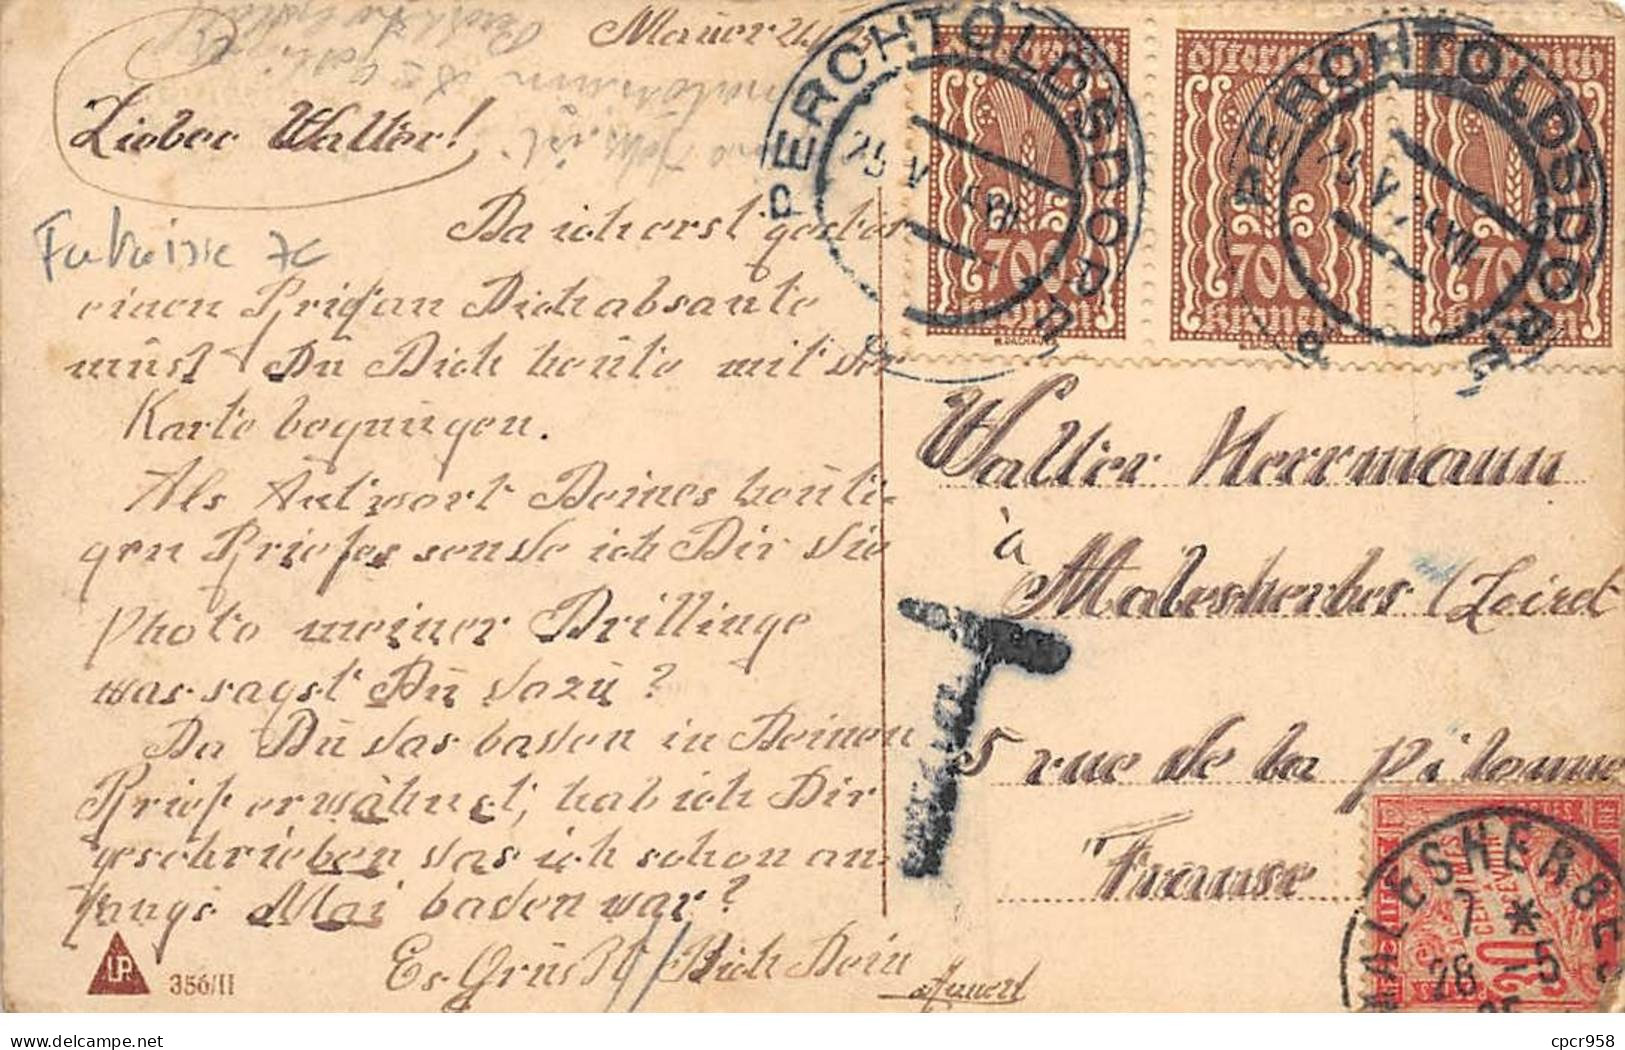 Mauer 24.
Lieber Walter!
Da ich erst gester
einen Brief an Dich absante
must Du Dich heute mit der
Karte begnügen.
Als Antwort Deines heuti-
gen Briefes sende ich Dir die
Photo meiner Drillinge
was sagst Du dazu?
Da Du das baden in Deinen
Brief erwähnst, hab ich Dir
geschrieben das ich schon an-
fangs Mai baden war?
Es Grüsst Dich Dein
LP
356/II
PERCHTOLDSDORF
25 V
Österreich
700
Kronen
PERCHTOLDSDORF
25 V
Österreich
700
Kronen
Walter Herrmann
à
Malesherbes (Loiret
T
5 rue de la pilonne
France
MALESHERBES
7 *
28 5
25
30
CENTIMES
À PERCEVOIR
cpcr958